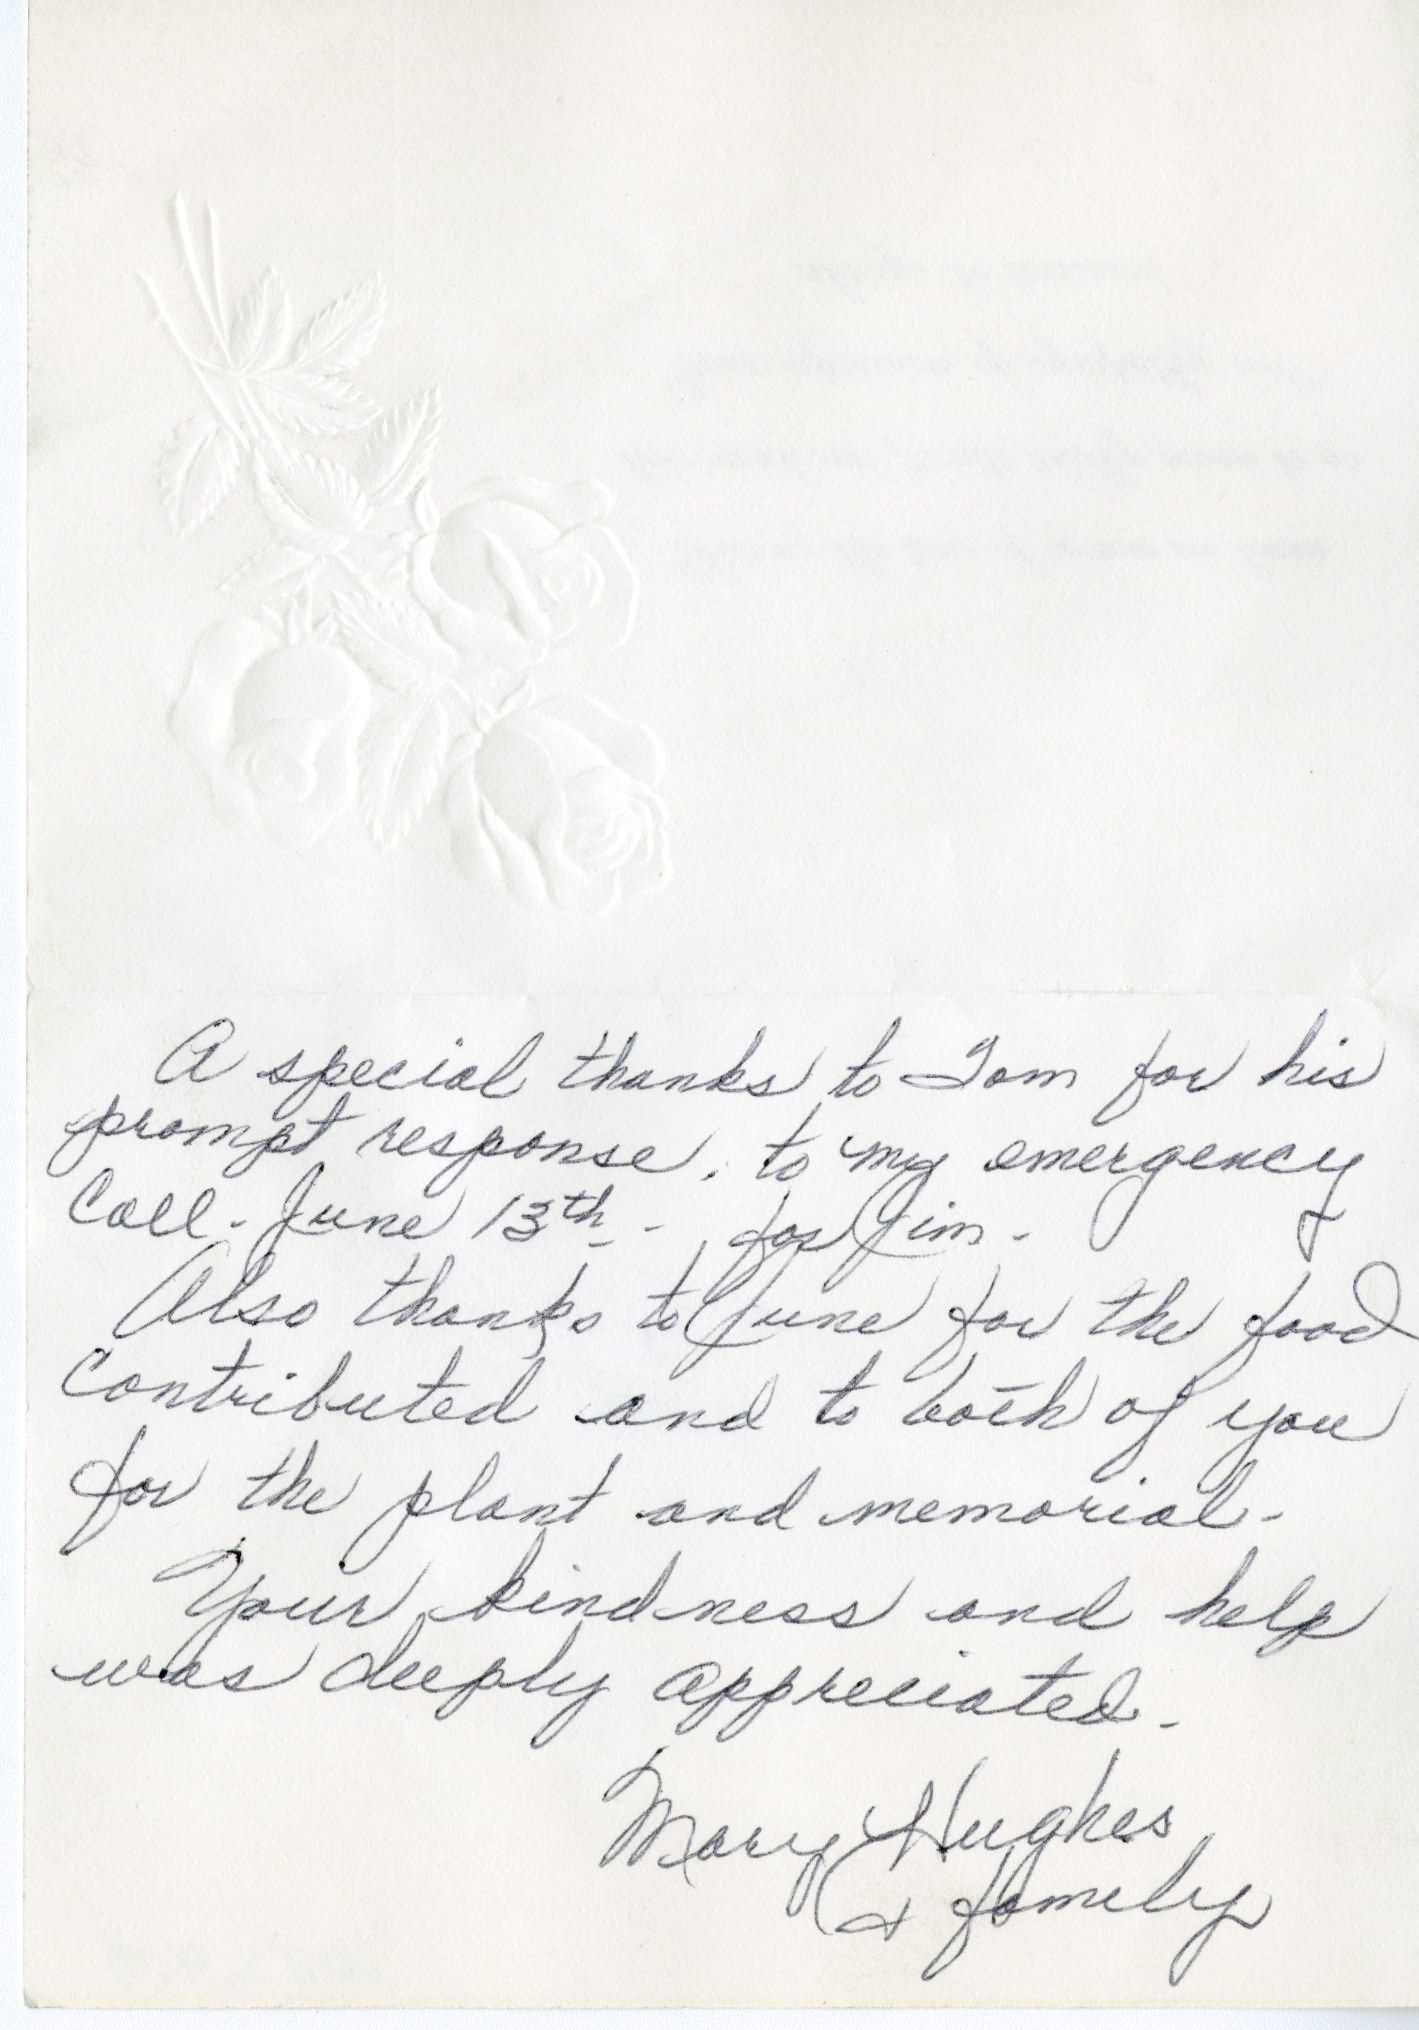 A special thanks to Tom for his
prompt response. to my emergency
Call - June 13th - for Jim.
Also thanks to June for the food
contributed and to both of you
for the plant and memorial.
Your kindness and help
was deeply appreciated.
Mary Hughes
& family